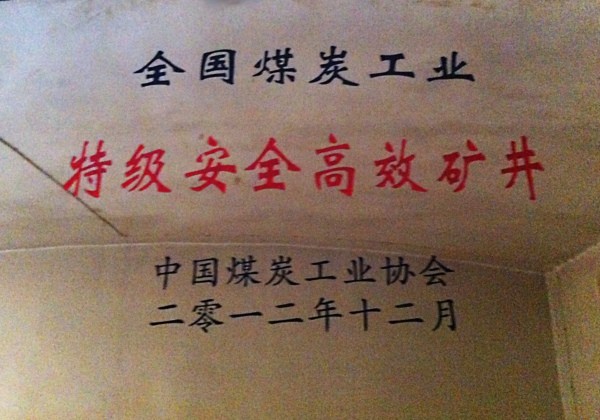 全国煤炭工业
特级安全高效矿井
中国煤炭工业协会
二零一二年十二月